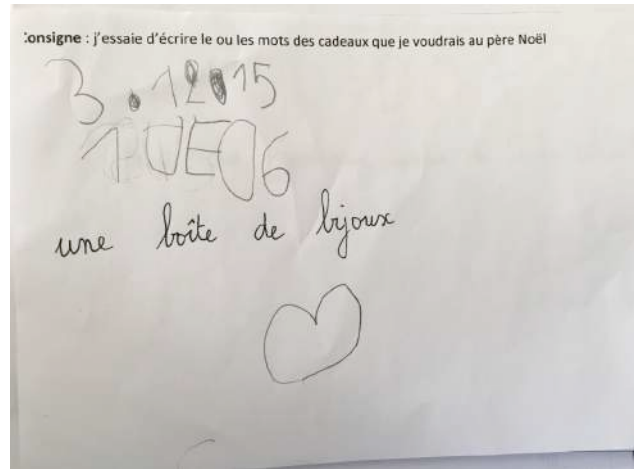 :onsigne : j'essaie d'écrire le ou les mots des cadeaux que je voudrais au père Noël
3.12.15
1UEO6
une boîte de bijoux